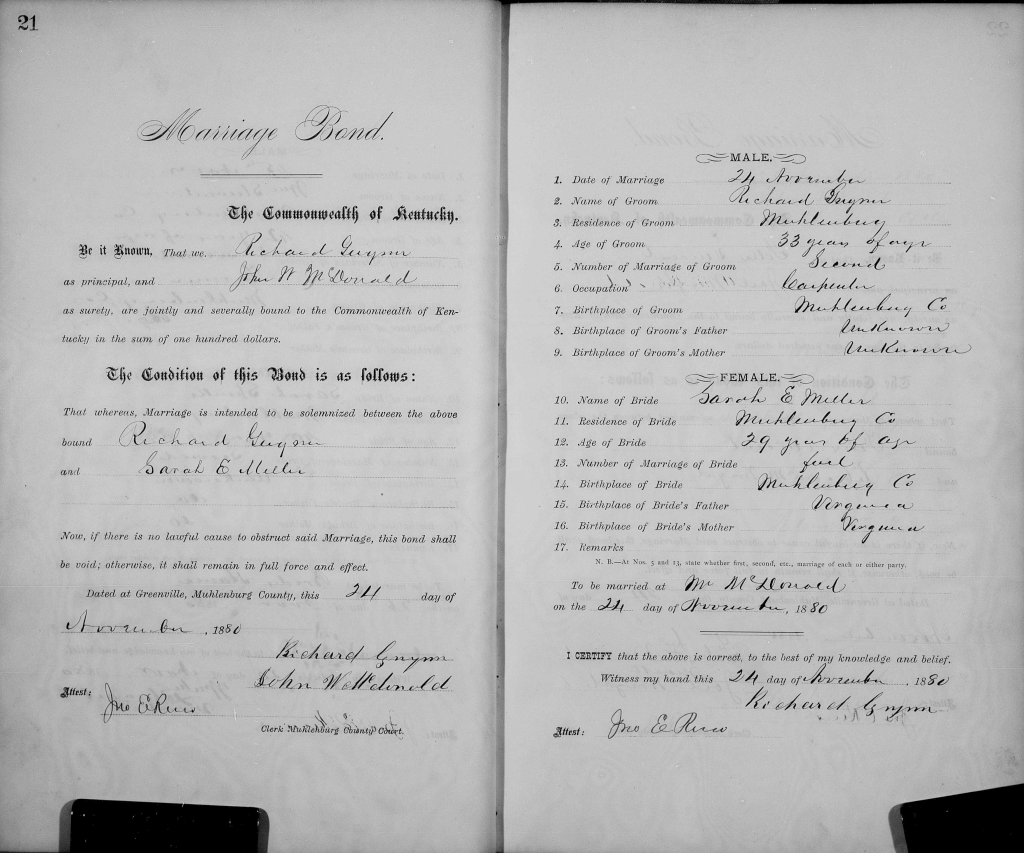 21
Marriage Bond.
The Commonwealth of Kentucky.
Be it Known, That we, Richard
as principal, and John W McDonald
as surety, are jointly and severally bound to the Commonwealth of Ken-
tucky in the sum of one hundred dollars.
The Condition of this Bond is as follows:
That whereas, Marriage is intended to be solemnized between the above
bound Richard
and Sarah E Miller
Now, if there is no lawful cause to obstruct said Marriage, this bond shall
be void; otherwise, it shall remain in full force and effect.
Dated at Greenville, Muhlenburg County, this 24 day of
November, 1880
Richard
John W McDonald
Attest:
Jno E Reno
Clerk Muhlenburg County Court.
MALE.
1. Date of Marriage 24 November
2. Name of Groom Richard
3. Residence of Groom Muhlenburg
4. Age of Groom 33 years of age
5. Number of Marriage of Groom Second
6. Occupation Carpenter
7. Birthplace of Groom Muhlenburg Co
8. Birthplace of Groom's Father UnKnown
9. Birthplace of Groom's Mother UnKnown
FEMALE.
10. Name of Bride Sarah E Miller
11. Residence of Bride Muhlenburg Co
12. Age of Bride 29 years of age
13. Number of Marriage of Bride
14. Birthplace of Bride Muhlenburg Co
15. Birthplace of Bride's Father Virginia
16. Birthplace of Bride's Mother Virginia
17. Remarks
N. B.—At Nos. 5 and 13, state whether first, second, etc., marriage of each or either party.
To be married at Mr McDonald
on the 24 day of November, 1880
I CERTIFY that the above is correct, to the best of my knowledge and belief.
Witness my hand this 24 day of November, 1880
Richard
Attest: Jno E Reno